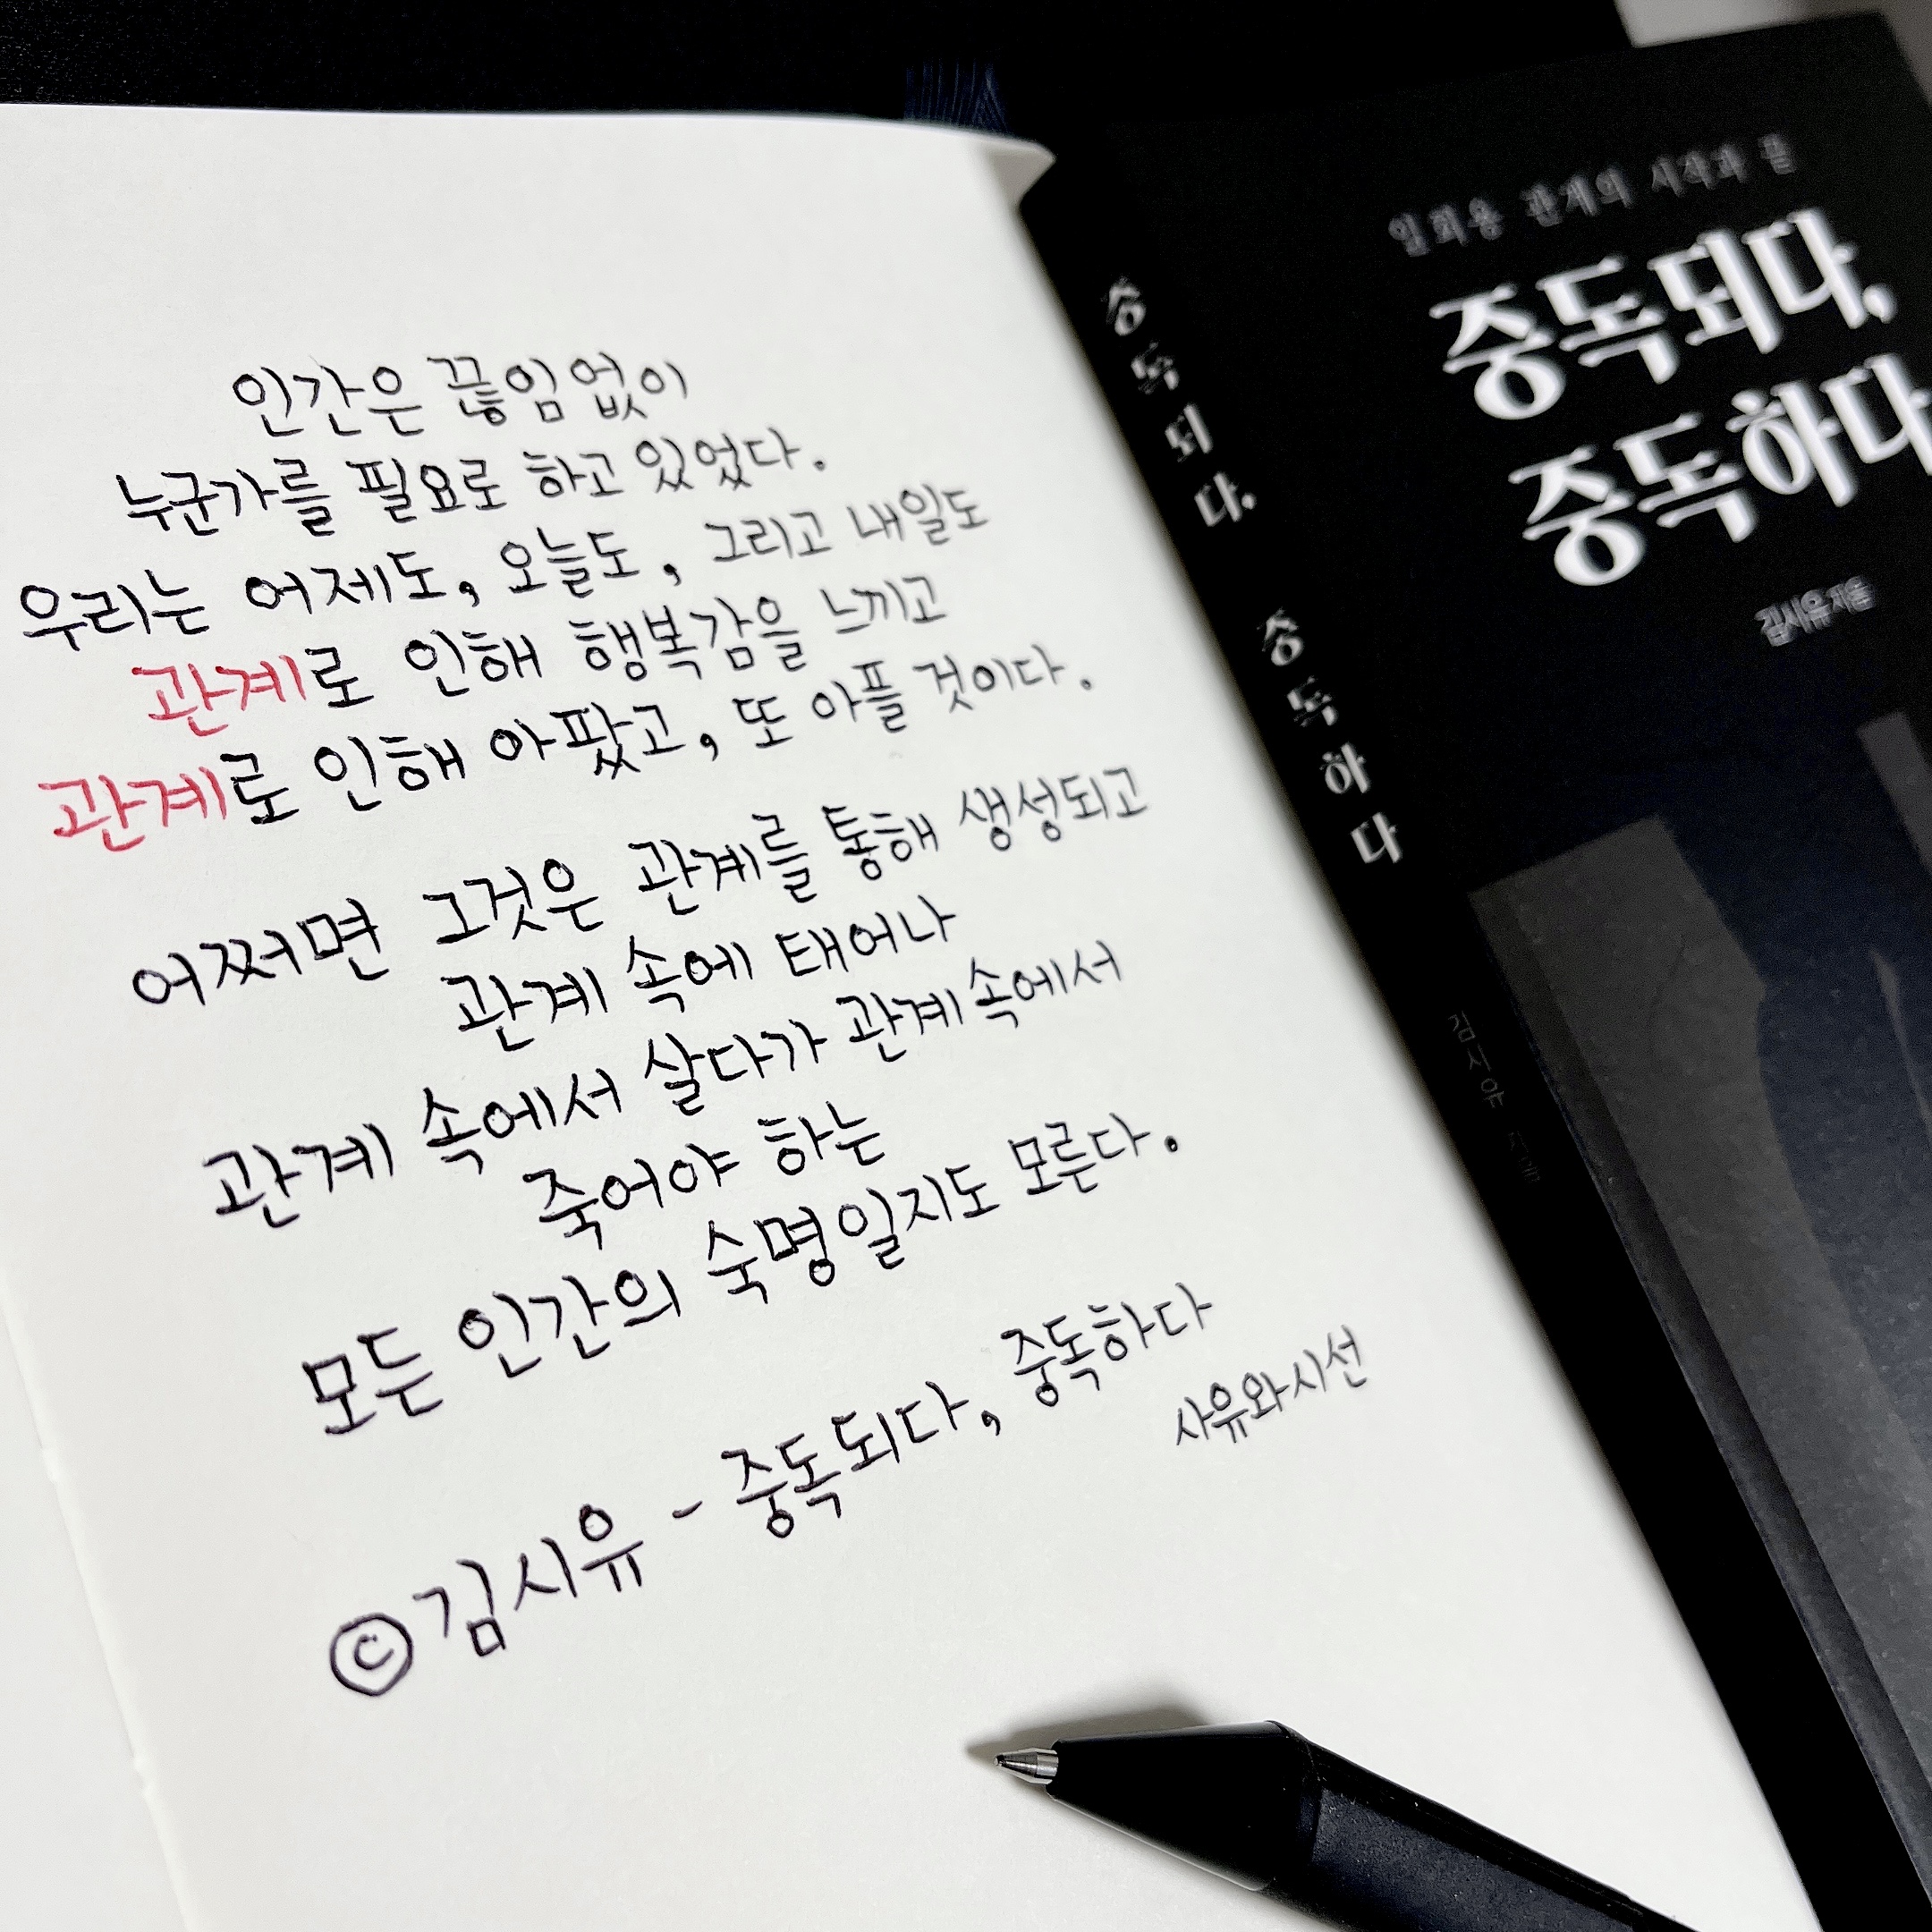 인간은 끊임없이
누군가를 필요로 하고 있었다.
우리는 어제도, 오늘도, 그리고 내일도
관계로 인해 행복감을 느끼고
관계로 인해 아팠고, 또 아플 것이다.
어쩌면 그것은 관계를 통해 생성되고
관계 속에 태어나
관계 속에서 살다가 관계 속에서
죽어야 하는
모든 인간의 숙명일지도 모른다.
©김시유 - 중독되다, 중독하다
사유와시선
중독되다, 중독하다
김시유 지음
일회용 관계의 시작과 끝
중독되다,
중독하다
김시유 지음